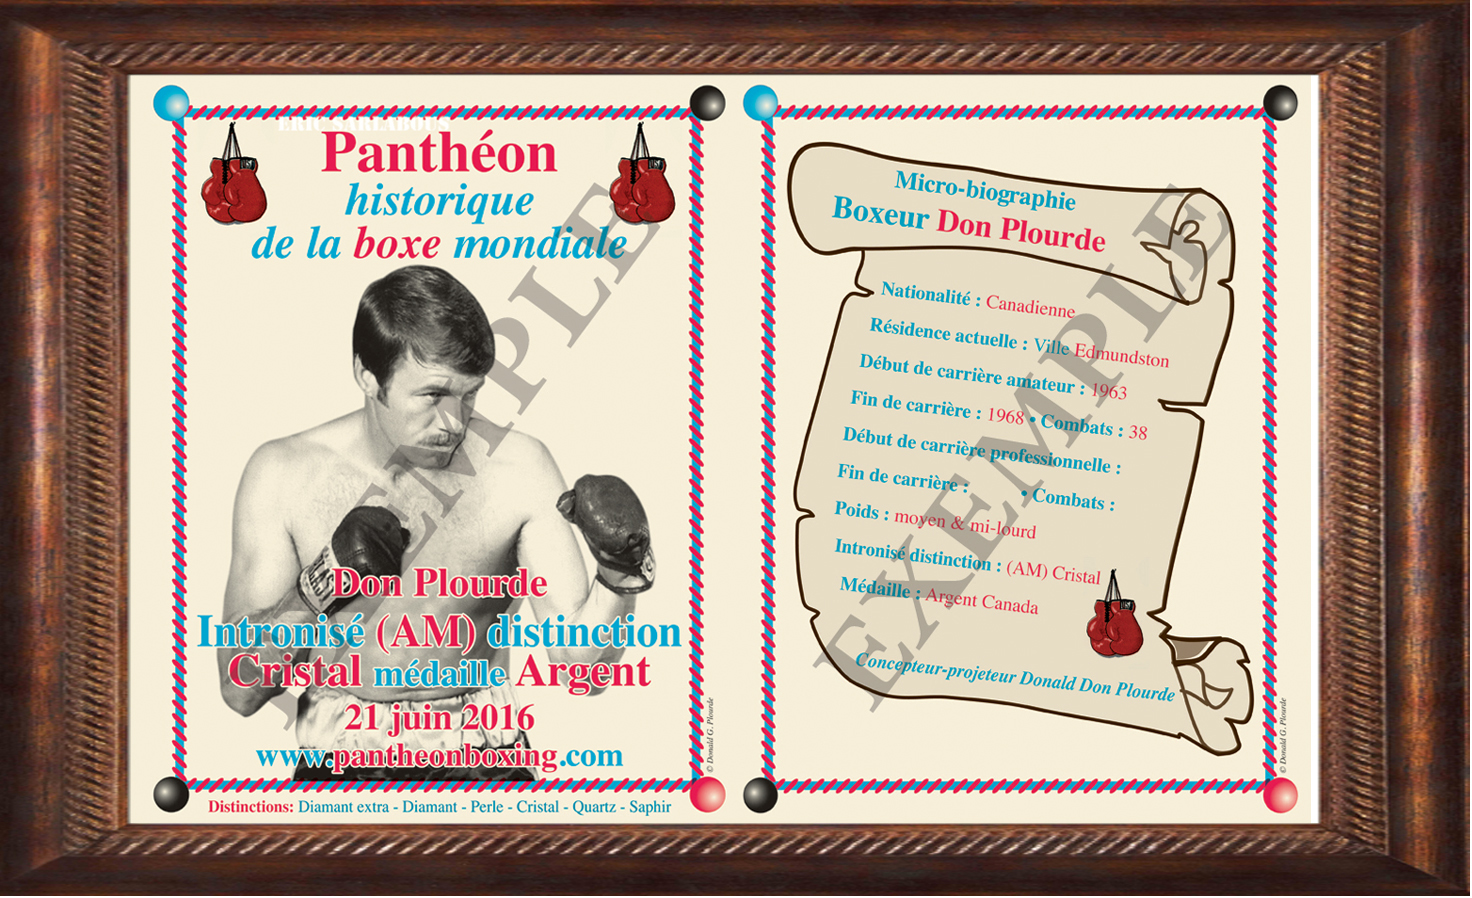 ERIC SARLABOUS
Panthéon
historique
de la boxe mondiale
EXEMPLE
Don Plourde
Intronisé (AM) distinction
Cristal médaille Argent
21 juin 2016
www.pantheonboxing.com
Distinctions: Diamant extra - Diamant - Perle - Cristal - Quartz - Saphir
© Donald G. Plourde
Micro-biographie
Boxeur Don Plourde
Nationalité : Canadienne
Résidence actuelle : Ville Edmundston
Début de carrière amateur : 1963
Fin de carrière : 1968 • Combats : 38
Début de carrière professionnelle :
Fin de carrière : • Combats :
Poids : moyen & mi-lourd
Intronisé distinction : (AM) Cristal
Médaille : Argent Canada
Concepteur-projeteur Donald Don Plourde
EXEMPLE
© Donald G. Plourde